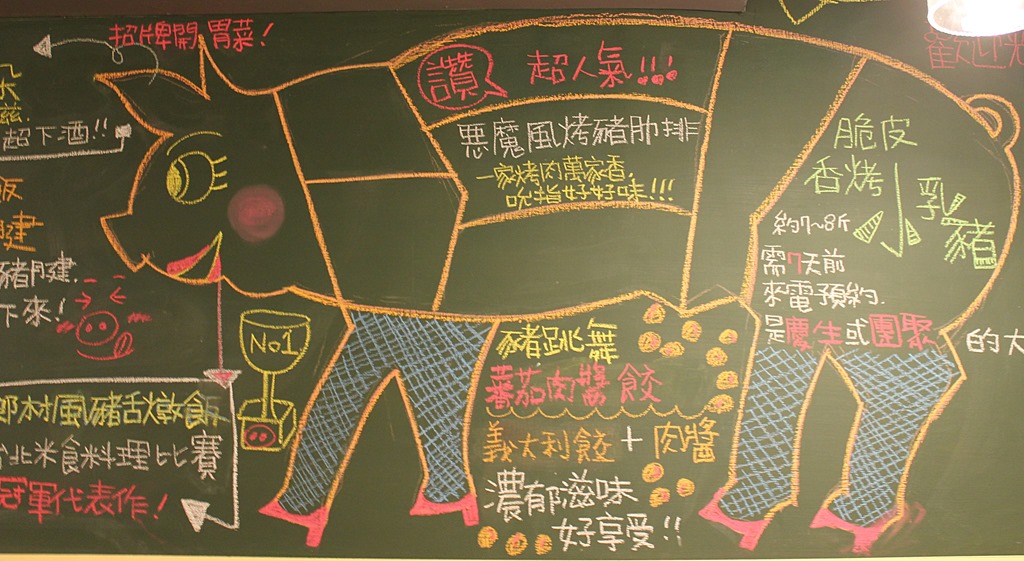 招牌開胃菜!
朵
絲.
超下酒!!
飯
腱
豬腱.
下來!
No1
鄉村風豬舌燉飯
台北米食料理比賽
冠軍代表作!
讚
超人氣!!!
悪魔風烤豬肋排
一家烤肉萬家香,
吮指好好味!!!
豬跳舞
蕃茄肉醬餃
義大利餃+肉醬
濃郁滋味
好享受!!
脆皮
香烤小乳豬
約7~8斤
需7天前
來電預約.
是慶生或團聚
的大
歡迎光